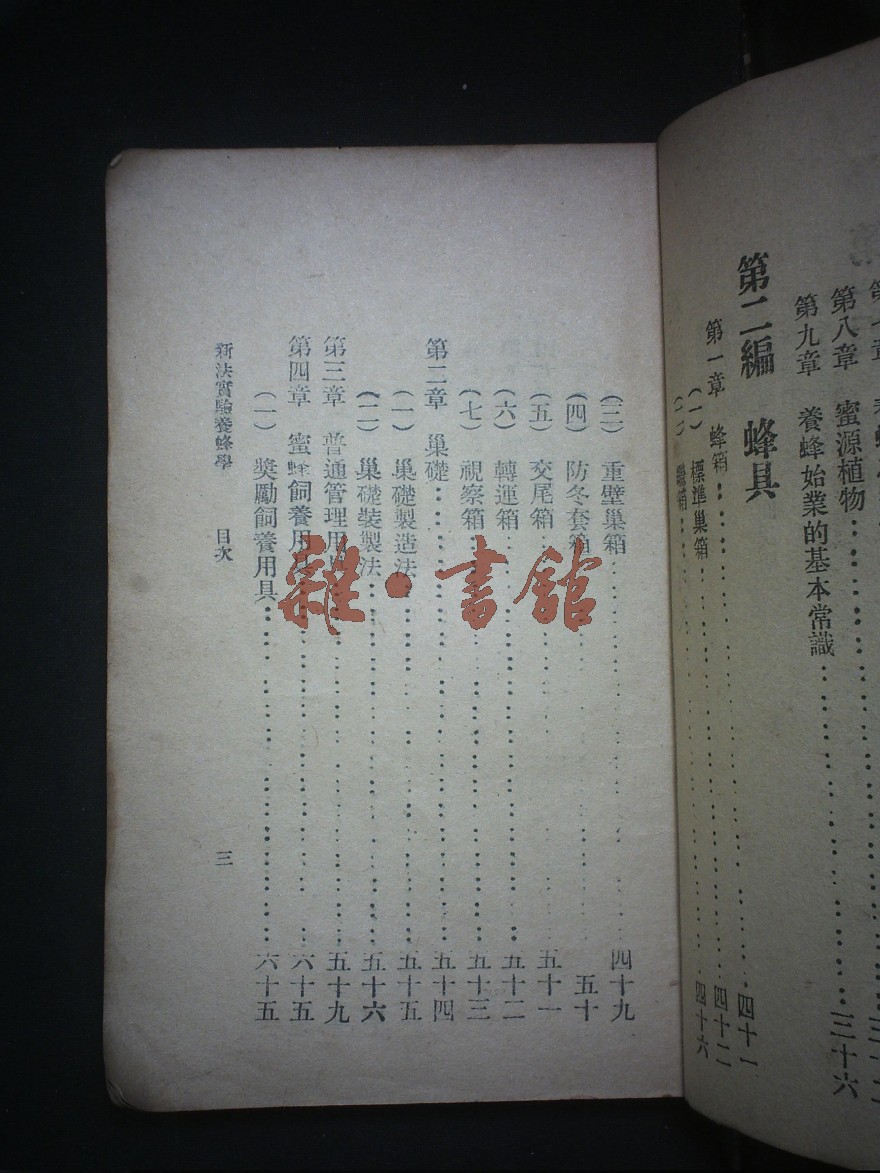 第八章 蜜源植物
第九章 養蜂始業的基本常識 三十六
第二編 蜂具
第一章 蜂箱 四十一
(一) 標準巢箱 四十二
四十六
(三) 重壁巢箱 四十九
(四) 防冬套箱 五十
(五) 交尾箱 五十一
(六) 轉運箱 五十二
(七) 視察箱 五十三
第二章 巢礎 五十四
(一) 巢礎製造法 五十五
(二) 巢礎裝製法 五十六
第三章 普通管理用具 五十九
第四章 蜜蜂飼養用具 六十五
(一) 獎勵飼養用具 六十五
新法實驗養蜂學 目次 三
雜·書館